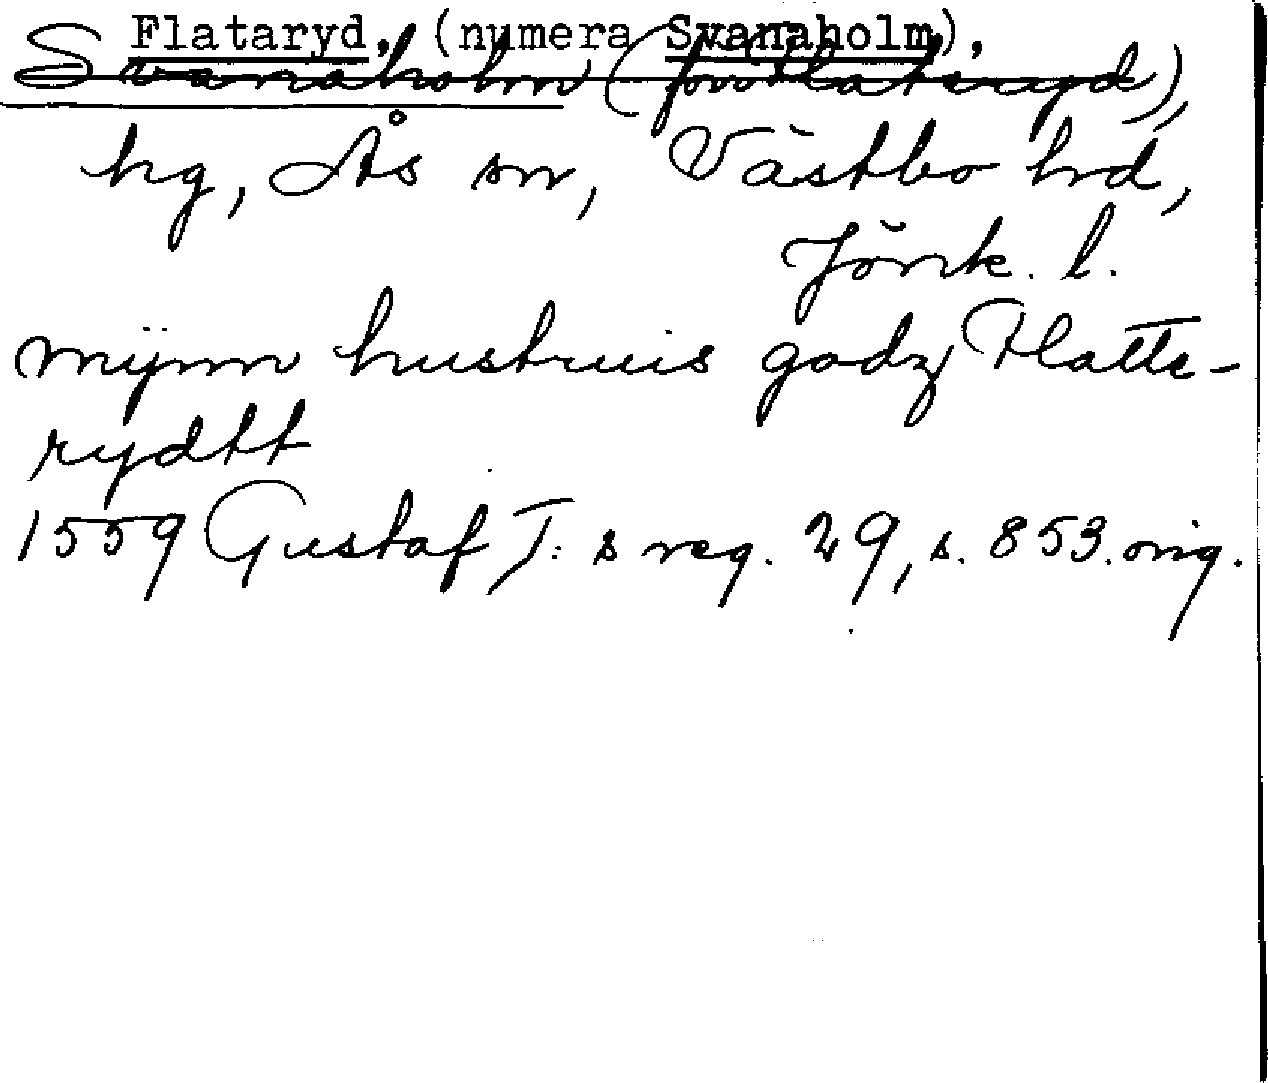 Flataryd, (numera Svanaholm),
Svanaholm (förr Flataryd),
hg, Ås sn, Västbo hrd,
Jönk. l.
mÿnn hustruis godz Flatte-
rydtt
1559 Gustaf I:s reg. 29, s. 853. orig.